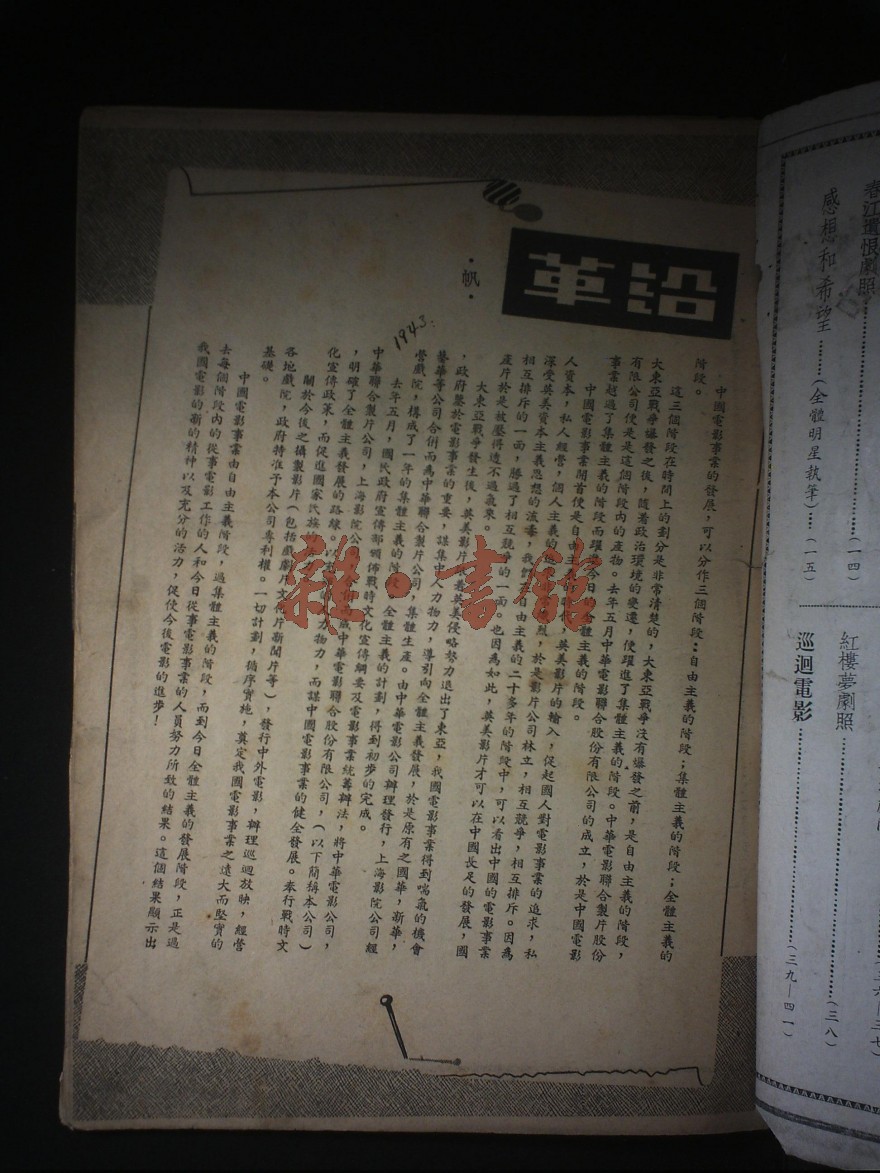 沿革
·帆·
1943.
中國電影事業的發展，可以分作三個階段：自由主義的階段；集體主義的階段；全體主義的
階段。
這三個階段在時間上的劃分是非常清楚的，大東亞戰爭沒有爆發之前，是自由主義的階段，
大東亞戰爭爆發之後，隨着政治環境的變遷，便躍進了集體主義的階段。中華電影聯合製片股份
有限公司便是這個階段內的產物。去年五月中華電影聯合股份有限公司的成立，於是中國電影
事業越過了集體主義的階段而躍進今日全體主義的階段。
中國電影事業開首便是自由主義的時代，英美影片的輸入，促起國人對電影事業的追求，私
人資本，私人經營，個人主義的烈，於是影片公司林立，相互競爭，相互排斥。因為
深受英美資本主義思想的流毒，我們自由主義的二十多年的階段中，可以看出中國的電影事業
相互排斥的一面，勝過了相互競爭的一面。也因為如此，英美影片才可以在中國長足的發展，國
產片於是被壓得透不過氣來。
大東亞戰爭發生後，英美影片英美侵略勢力退出了東亞，我國電影事業得到喘氣的機會
，政府鑒於電影事業的重要，謀集中人力物力，導引向全體主義發展，於是原有之國華，新華，
藝華等公司合併而為中華聯合製片公司，集體生產。由中華電影公司辦理發行，上海影院公司經
營戲院，構成了一年的集體主義的階段，全體主義的計劃，得到初步的完成。
去年五月，國民政府宣傳部頒佈戰時文化宣傳綱要及電影事業統籌辦法，將中華電影公司，
中華聯合製片公司，上海影院公司成中華電影聯合股份有限公司，（以下簡稱本公司）
，明確了全體主義發展的路線。以力物力，而謀中國電影事業的健全發展。奉行戰時文
化宣傳政策，而促進國家民族
關於今後之攝製影片（包括戲劇片文化片新聞片等），發行中外電影，辦理巡迴放映，經營
各地戲院，政府特准予本公司專利權。一切計劃，循序實施，奠定我國電影事業之遠大而堅實的
基礎。
中國電影事業由自由主義階段，過集體主義的階段，而到今日全體主義的發展階段，正是過
去每個階段內的從事電影工作的人和今日從事電影事業的人員努力所致的結果。這個結果顯示出
我國電影的新的精神以及充分的活力，促使今後電影的進步！
雜·書館
春江遺恨劇照（一四）
感想和希望………（全體明星執筆）…（一五）
紅樓夢劇照…………（三八）
巡迴電影…………（三九—四一）